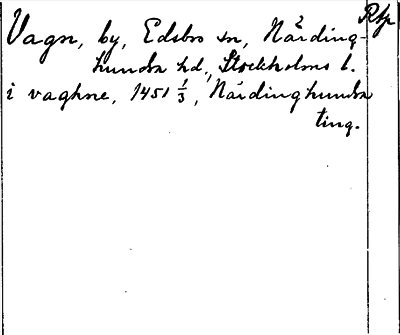 Rtp
Vagn, by, Edsbro sn, Närding-
hundra hd., Stockholms l.
i vaghne, 1451 1/3, Närdinghundra
ting.